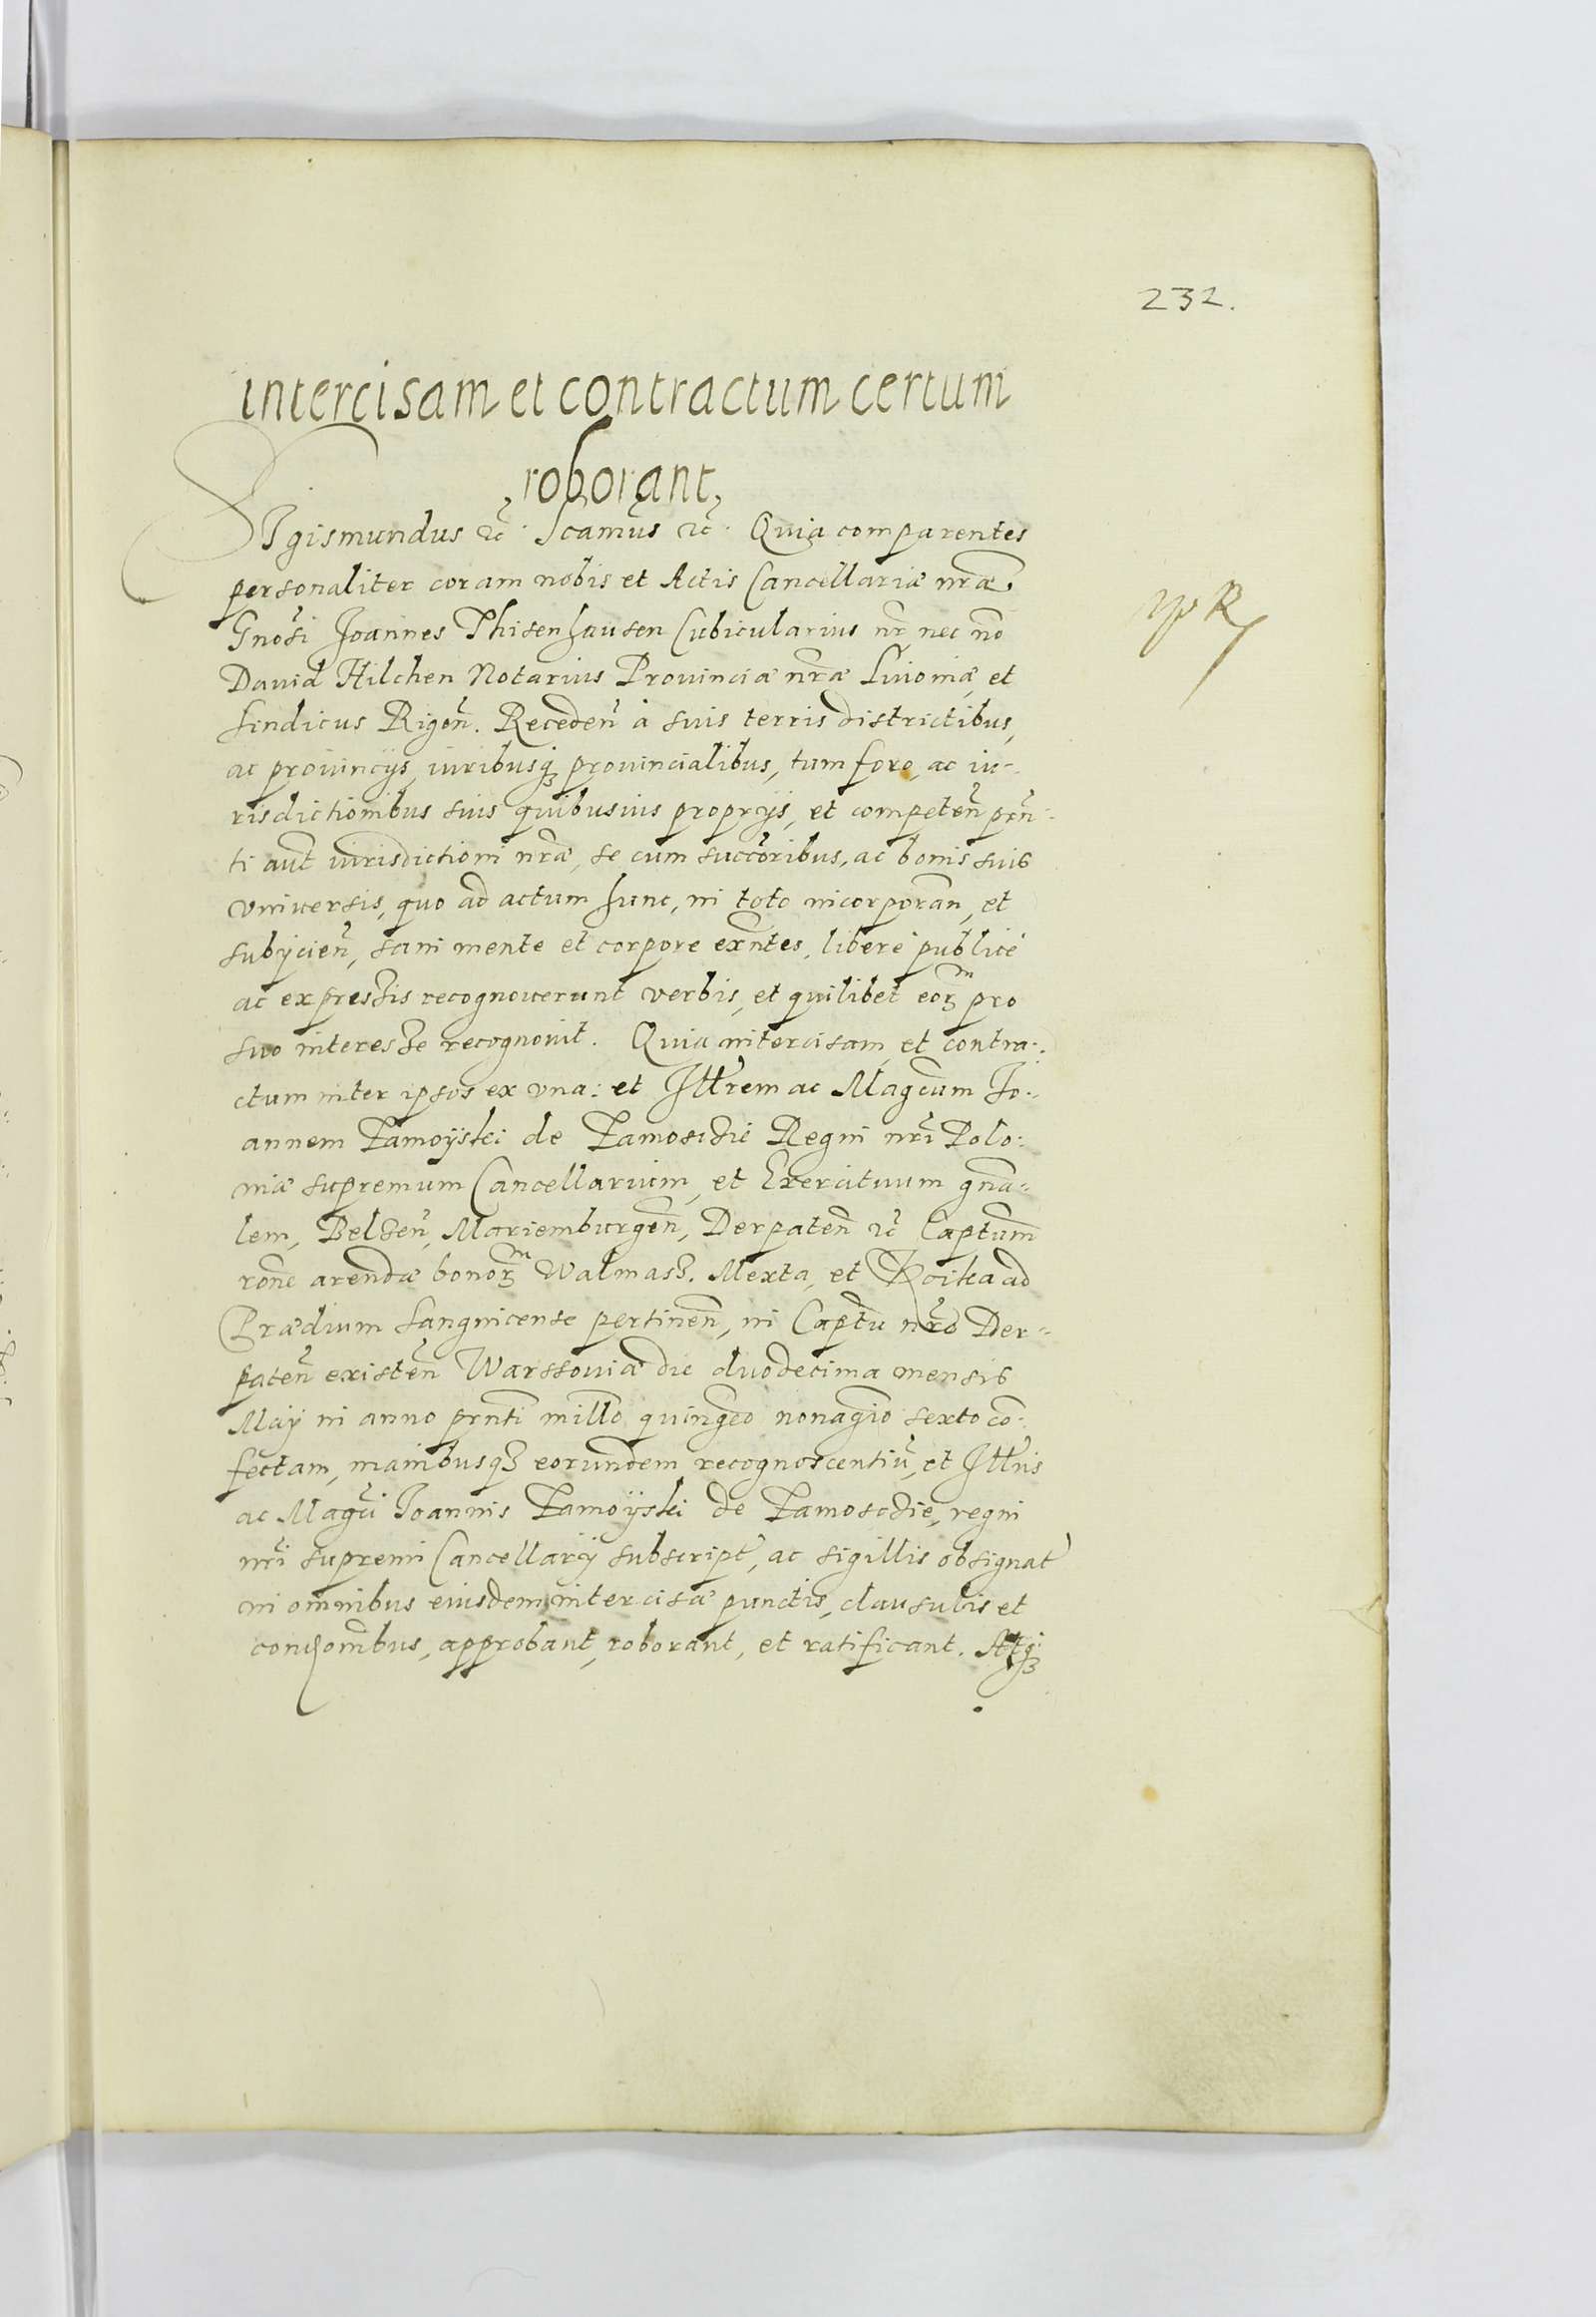 232.
intercisam et contractum certum
roborant
SIgismundus ꝛc̃. Scamũs ꝛc̃. Quia comparentes
personaliter coram nobis et Actis Cancellariæ nr̃æ
Gnõsi Joannes Thisenhausen Cubicularius nr̃ nec nõ
Dauid Hilchen Notarius Prouinciæ nr̃æ Liuoniæ, et
Sindicus Rigeñ. Recedeñ à suis terris districtibus,
ac prouincijs, iuribusq₃ prouincialibus, tum foro, ac iu-
risdictionibus suis quibusuis proprijs, et competeñ prñ-
ti aut̃ iurisdictioni nr̃æ, se cum succõribus, ac bonis suis
vniuersis, quo ad actum hunc, in toto incorporañ, et
subijcieñ, sani mente et corpore exñtes, liberè publicè
ac expressis recognouerunt verbis, et quilibet eoꝝ pro
suo interesse recognouit. Quia intercisam, et contra-
ctum inter ipsos ex vna: et Illr̃em ac Magcũm Jo-
annem Zamoyski de Zamoscie Regni nr̃i Polo-
niæ supremum Cancellarium, et Exercituum gnã-
lem, Belseñ, Mariemburgeñ, Derpateñ ꝛc̃ Captũm
rõne arendæ bonoꝝ Walmass. Mexta, et Koika ad
Prædium Sangnicense pertineñ, in Captũ nr̃o Der-
pateñ existeñ Warssouiæ die duodecima mensis
Maij in anno prñti millõ quingẽo nonagĩo sexto cõ-
fectam, manibusq₃ eorundem recognoscentiũ, et Illr̃is
ac Magci Joannis Zamoyski de Zamoscie, regni
nr̃i supremi Cancellarij subscript̃, ac sigillis obsignat̃
in omnibus eiusdem intercisæ punctis, clausulis et
condõnibus, approbant, roborant, et ratificant. Atq₃